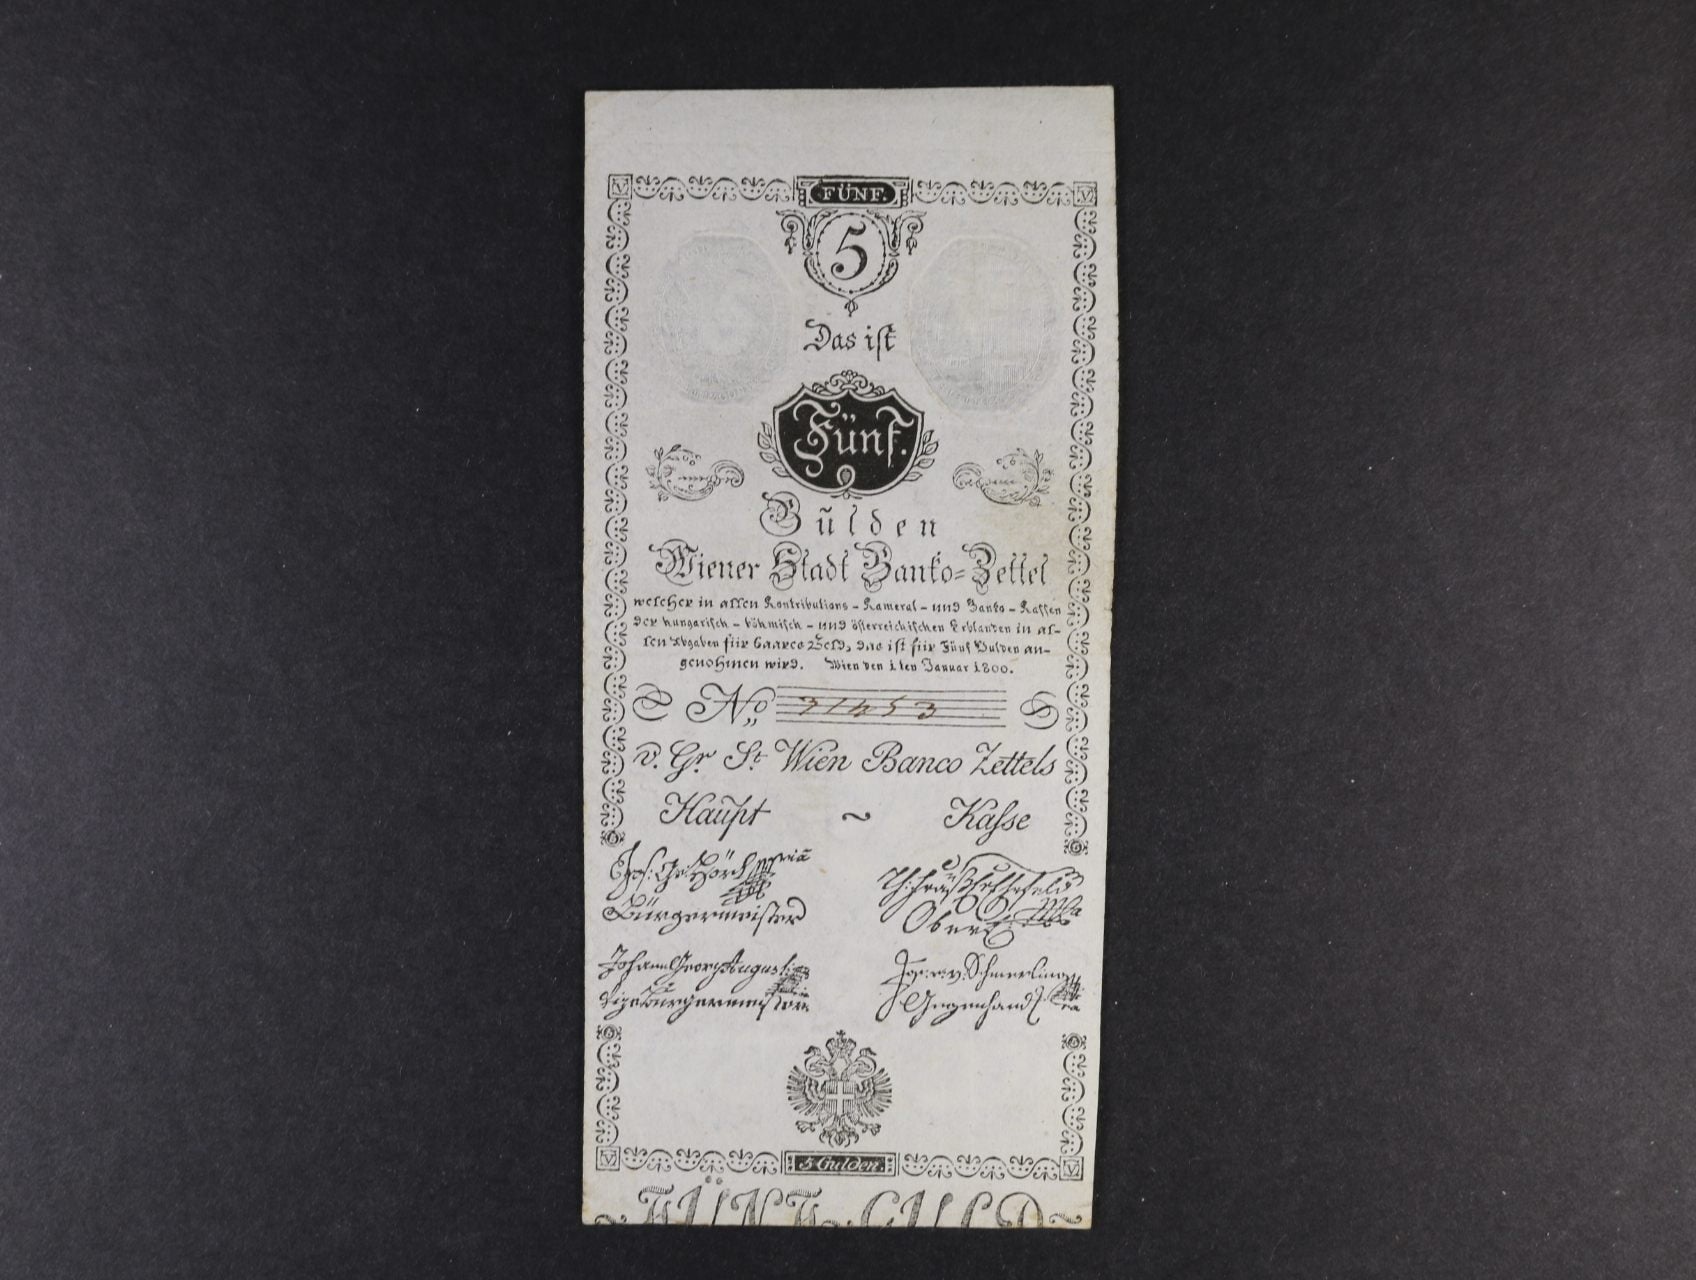 V
FÜNF.
V
5
Das ist
Fünf.
Gulden
Wiener Stadt Banko-Zettel
welcher in allen Kontributions – Kameral – und Banko – Kassen
der hungarisch – böhmisch – und österreichischen Erblanden in al-
len Abgaben für baares Geld, das ist für Fünf Gulden an-
genohmen wird. Wien den 1ten Januar 1800.
No 31453
v. Gr. St. Wien Banco Zettels
Haupt ~ Kasse
Jos. Ge. Hörl
Bürgermeister
Johann Georg Augusti
Vizebürgermeister
Jos. v. Schmerling
Gegenhand
V
5 Gulden.
V
~FÜNF GULD~